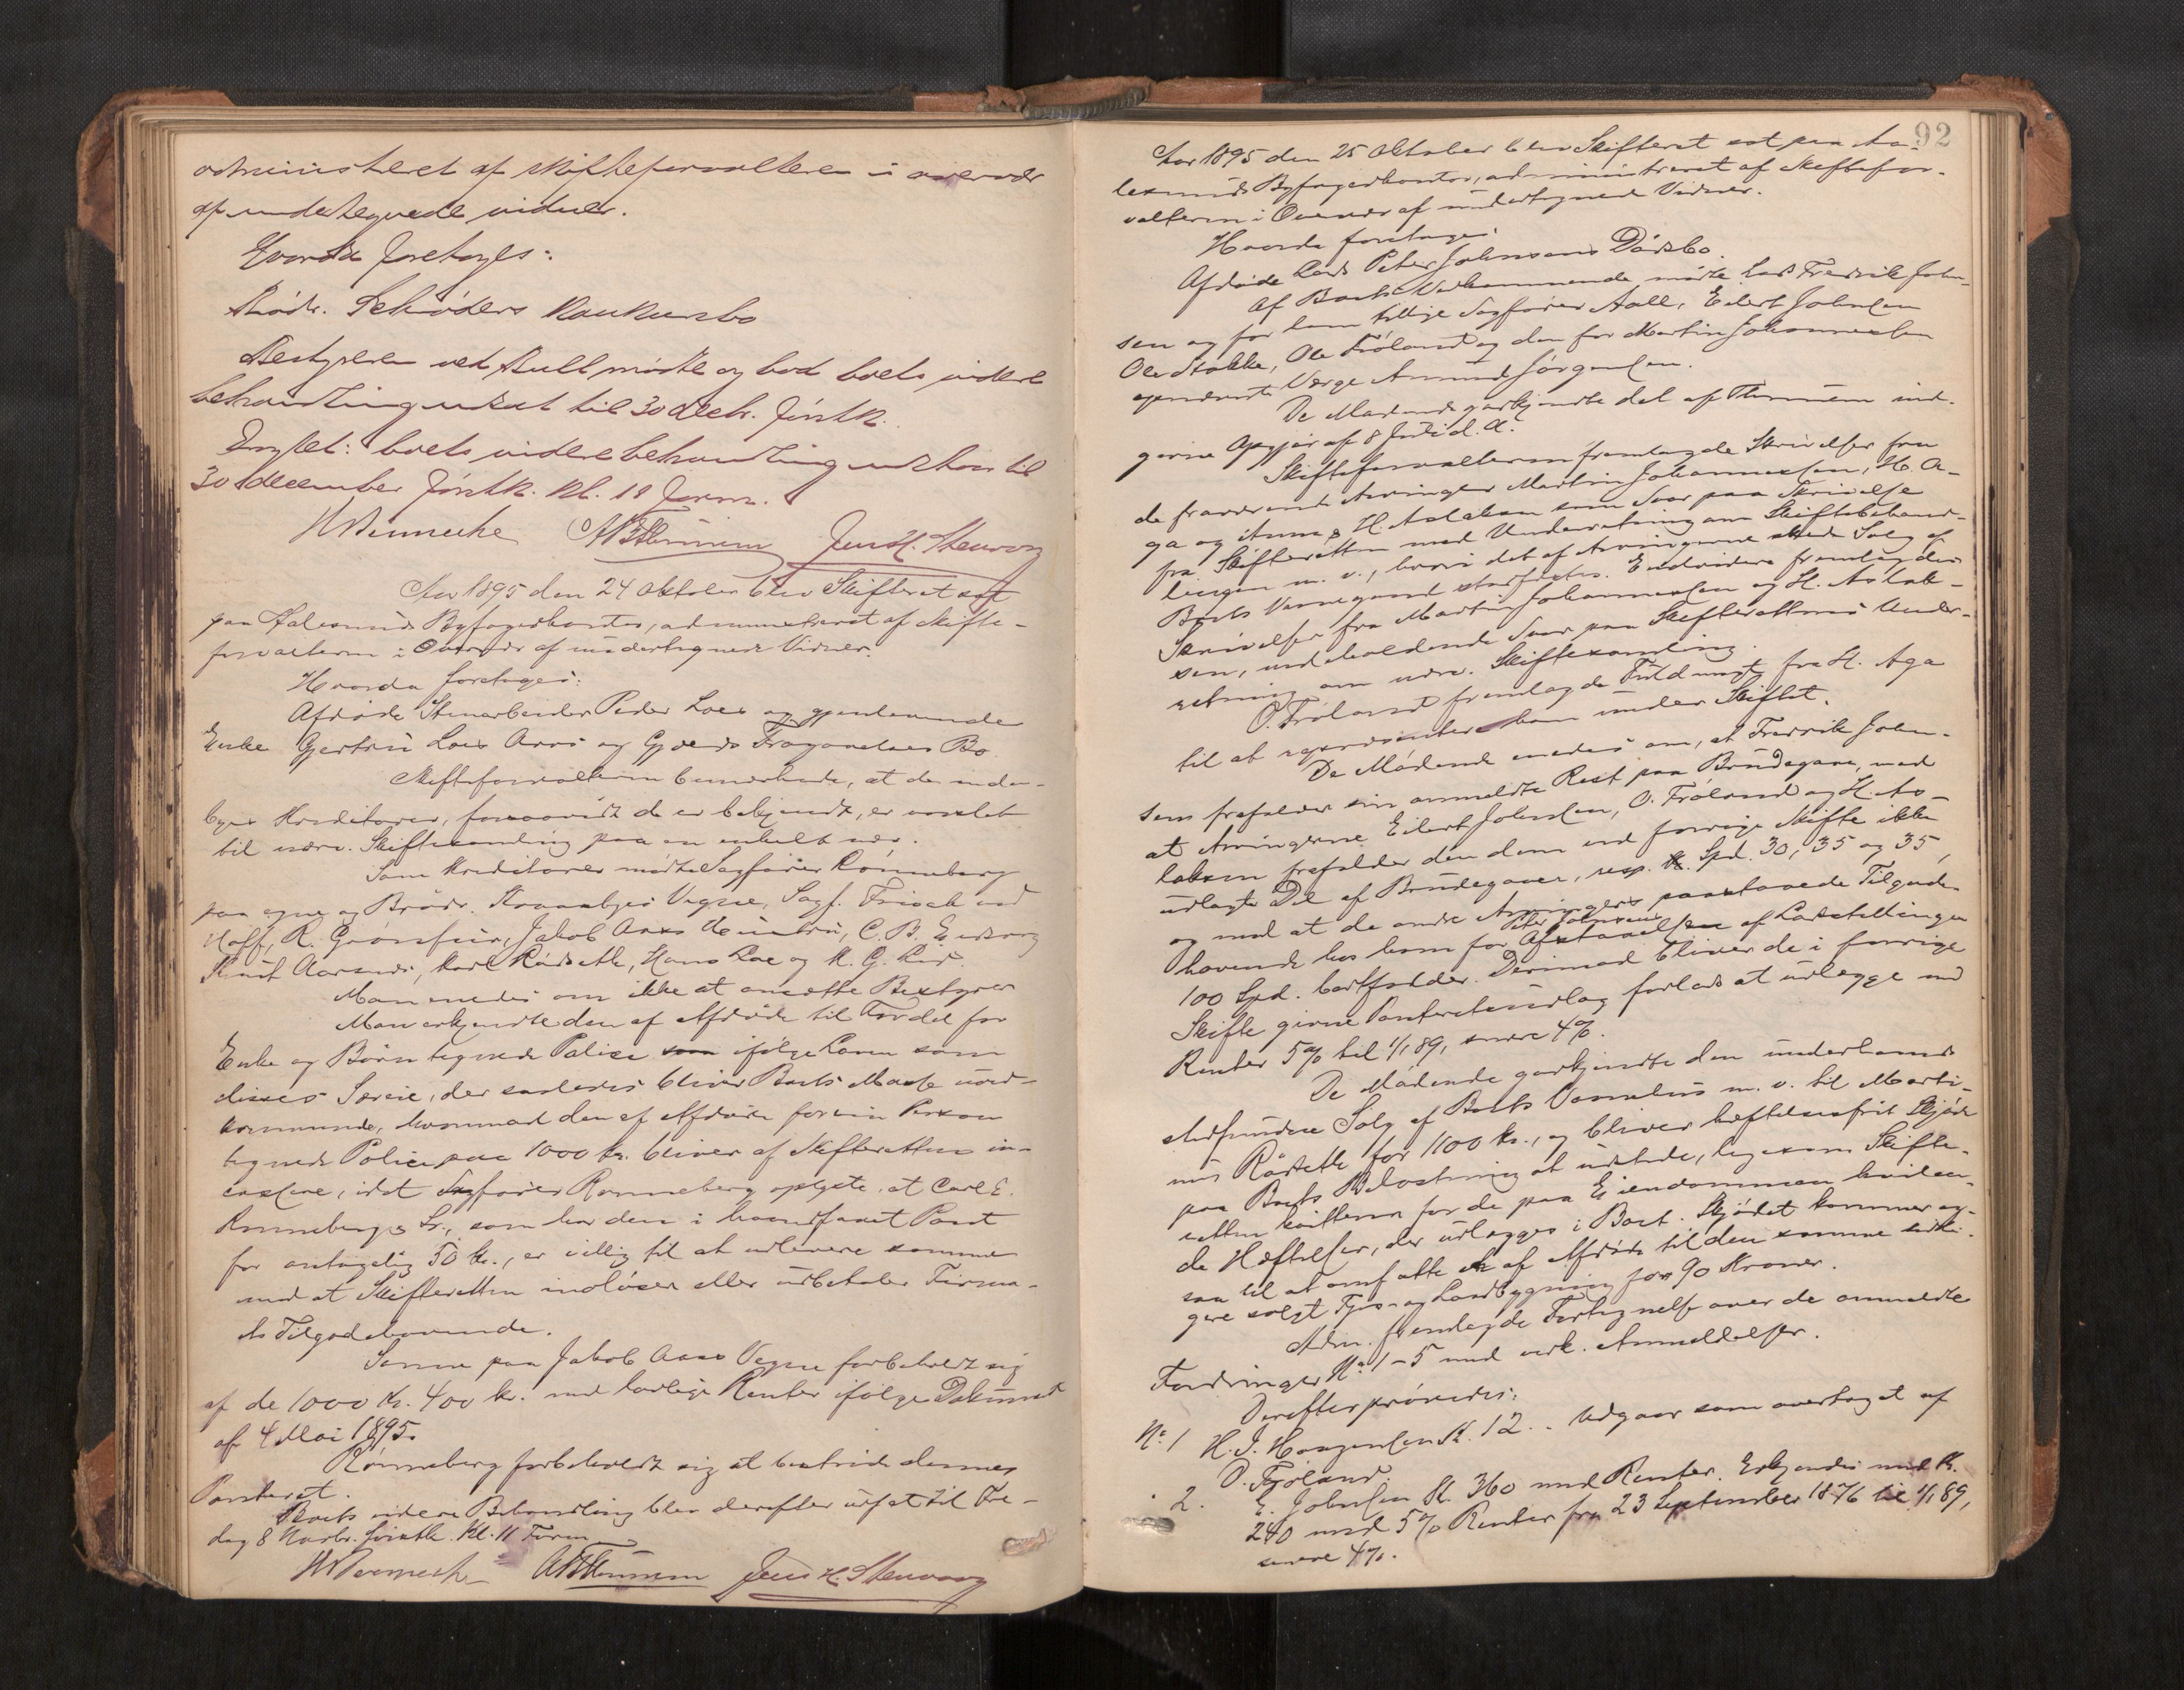 administreret af skifteforvalteren i overvær
af undertegnede vidner.
Hvorda foretoges:
Brødr. Schrøders konkursbo
Bestyreren ved Bull mødte og bad boets videre
behandling udsat til 30 decbr. førstk.
Besluttet: boets videre behandling udstaar til
30 december førstk. kl. 10 form.
Jens H. Stenvaag
Aar 1895 den 24 Oktober blev Skifteret sat
paa Aalesunds Byfogedkontor, administreret af Skifte-
forvalteren i Overvær af undertegnede Vidner.
Hvorda foretoges:
Afdøde Stenarbeider Peder Loes og gjenlevende
Enke Gjertrü Loes Arvs og Gjælds Fragaaelses Bo.
Skifteforvalteren bemærkede, at de inden-
byes Kreditorer, forsaavidt de er bekjendt, er varslet
til nærv. Skiftesamling paa en enkelt nær.
Som Kreditorer mødte Sagfører Rønneberg
paa egne og Brødr. Vegne, Sagf. Frisak ved
Hoff, R. Grønsfür, Jakob Aars C. B.
Knut Aarsnes, Karl Rødseth, Hans Loe og K. G. Lid.
Man enedes om ikke at ansætte Bestyrer
Man erkjendte den af Afdøde til Fordel for
Enke og Børn tegnede Police ifølge Loven som
disses Særeie, der saaledes bliver Boets Masse uved-
kommende, hvorimod den af Afdøde for sin Person
tegnede Police paa 1000 Kr. bliver af Skifteretten in-
cassere, idet Sagfører Rønneberg oplyste, at Carl E.
Rønneberg & Sr., som har den i haandfaaet Pant
for antagelig 50 Kr., er villig til at udlevere samme
mod at Skifteretten indløser eller udbetaler Firma-
ets Tilgodehavende.
Samme paa Jakob Aars Vegne forbeholdt sig
af de 1000 Kr. 400 Kr. med lovlige Renter ifølge Dokument
af 4 Mai 1895.
Rønneberg forbeholdt sig at bestride dennes
Panteret.
Boets videre Behandling blev derefter udsat til Fre-
dag 8 Novbr. førstk. Kl. 11 Form.
Jens H. Stenvaag
92
Aar 1895 den 25 Oktober blev Skifteret sat paa Aa-
lesunds Byfogedkontor, administreret af Skiftefor-
valteren i Overvær af undertegnede Vidner.
Hvorda foretoges:
Afdøde Lars Peter Johnsens Dødsbo.
Af Boets Vedkommende mødte Lars Fredrik John-
sen og for ham tillige Sagfører Aall, Eilert Johnsen
Ole Stokke, Ole Frøland og den for Martin Johannessen
opnævnte Værge Amund Jørgensen.
De Mødende godkjendte det af Thunem ind-
givne Opgjør af 8 Juli d. A.
Skifteforvalteren fremlagde Skrivelser fra
de fraværende Arvinger Martin Johannessen, H. A-
ga og Anna & H. Aslaksen som Svar paa Skrivelse
fra Skifteretten med Underretning om Skiftebehand-
lingen m. v., hvori det af Arvingerne skede Salg af
Boets Vaanegaard stadfæstes. Endvidere fremlagdes
Skrivelser fra Martin Johannessen og H. Aslak-
sen, indeholdende Svar paa Skifterettens Under-
retning om nærv. Skiftesamling.
O. Frøland fremlagde Fuldmagt fra H. Aga
til at repræsentere ham under Skiftet.
De Mødende enedes om, at Fredrik John-
sen frafalder sin anmeldte Rest paa Brudegave, med
at Arvingerne Eilert Johnsen, O. Frøland og H. As-
laksen frafalder den dem ved forrige Skifte ikke
udlagte Del af Brudegaver, resp. Spd. 30, 35 og 35,
og med at de andre Arvingers paastaaede Tilgode-
havende hos ham for Peter Johnsens Afstaaelse af Ladstillingen
100 Spd. bortfalder. Derimod bliver de i forrige
Skifte givne Panteretsudlæg forlods at udlægge med
Renter 5% til 1/1 89, senere 4%.
De Mødende godkjendte den underhaands
stedfundne Salg af Boets Vaanehus m. v. til Marti-
nus Rødseth for 1100 Kr., og bliver heftelsesfrit Skjøde
paa Boets Bekostning at udstede, ligesom Skifte-
retten kvitterer for de paa Eiendommen hvilen-
de Hæftelser, der udlægges i Boet. Skjødet kommer og-
saa til at omfatte af Afdøde til den samme tidli-
gere solgt Fjøs- og Ladebygning for 90 Kroner.
Adm. fremlagde Fortegnelse over de anmeldte
Fordringer No 1-5 med vedk. Anmeldelser.
Derefter prøvedes:
No 1 H. J. Haagensen Kr. 12.- Udgaar som overtaget af
O. Frøland.
" 2. E. Johnsen Kr. 360 med Renter. Erkjendes med Kr.
240 med 5% Renter fra 23 September 1876 til 1/1 89,
senere 4%.